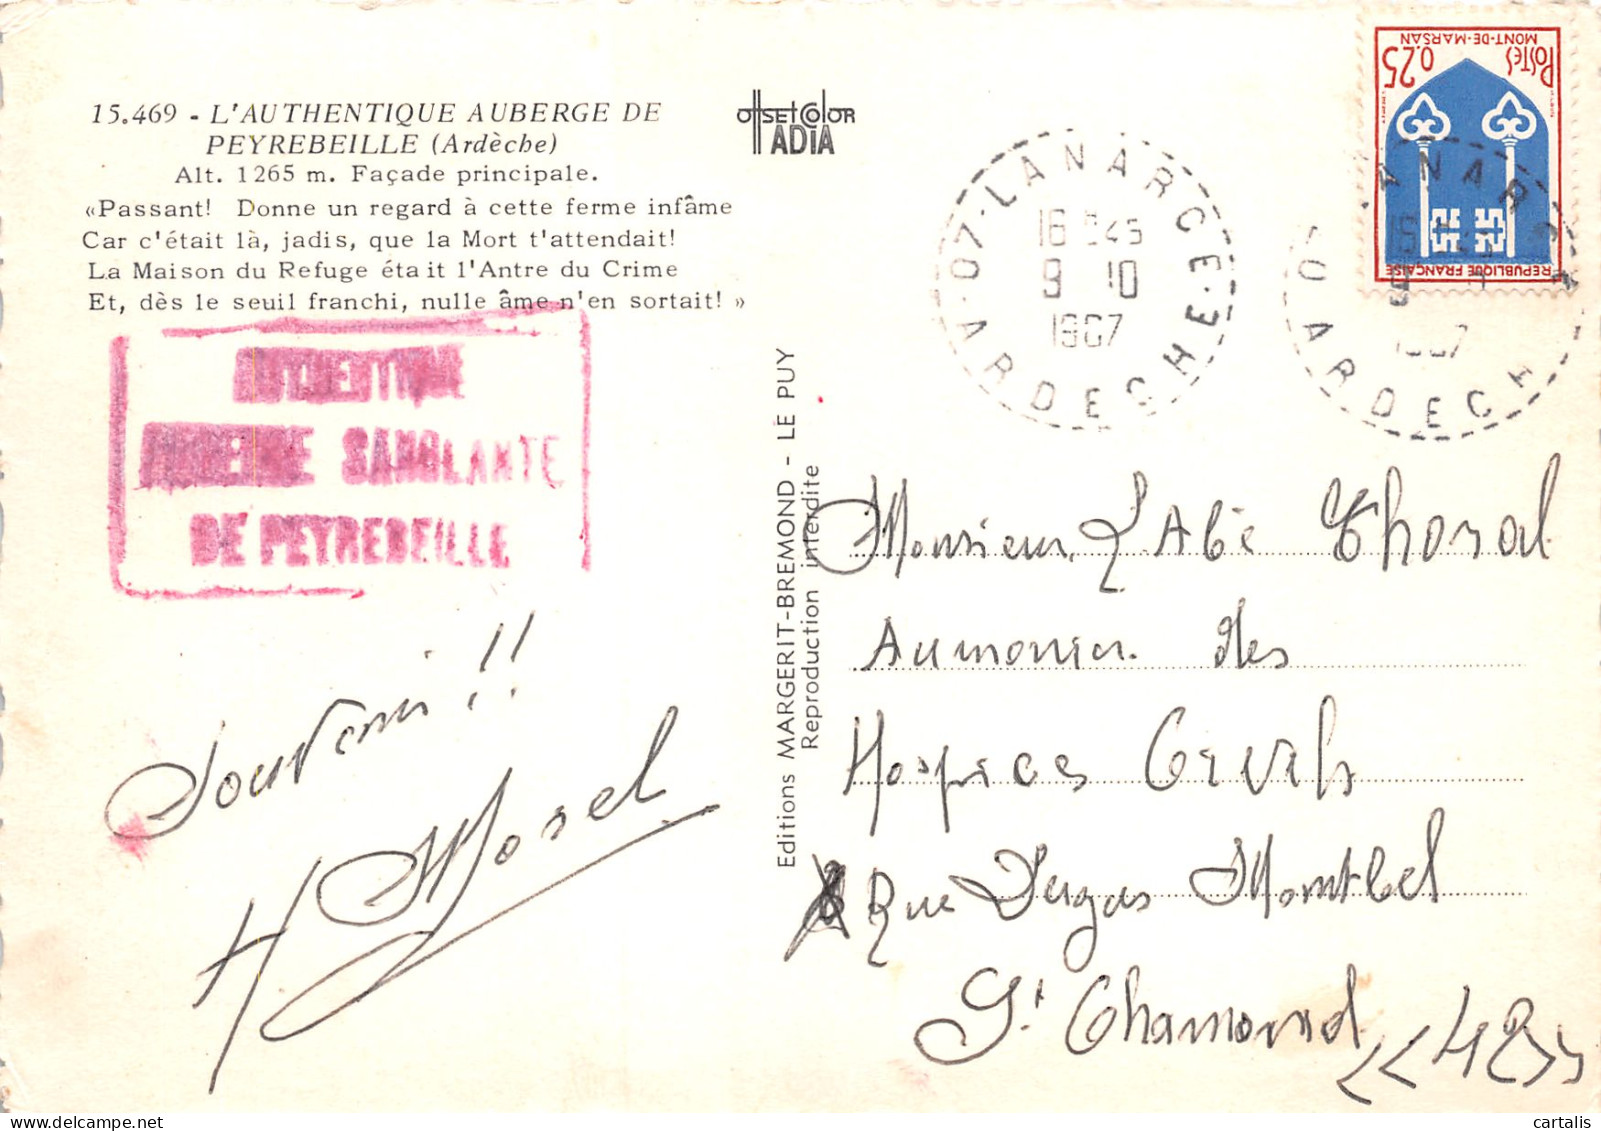 15.469 - L'AUTHENTIQUE AUBERGE DE
PEYREBEILLE (Ardèche)
Alt. 1265 m. Façade principale.
«Passant! Donne un regard à cette ferme infâme
Car c'était là, jadis, que la Mort t'attendait!
La Maison du Refuge éta it l'Antre du Crime
Et, dès le seuil franchi, nulle âme n'en sortait! »
OffSETColOR
IADIA
AUTHENTIQUE
AUBERGE SANGLANTE
DE PEYREBEILLE
Souvenir!!
H Morel
Editions MARGERIT-BREMOND - LE PUY
Reproduction interdite
07-LANARCE-ARDECHE
16 H45
9 10
1967
POSTES
0,25
MONT-DE-MARSAN
REPUBLIQUE FRANÇAISE
LANARCE
ARDECHE
Monsieur L'Abé Thoral
Aumonier des
Hospices Civils
8 Rue Dugas Montbel
St Chamond
<<42>>
cartalis